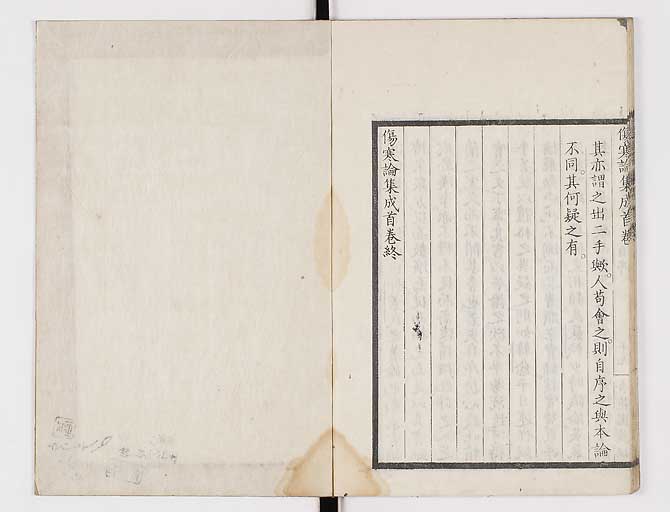 傷寒論集成首卷
其亦謂之出二手歟。人苟會之。則自序之與本論
不同。其何疑之有。
傷寒論集成首卷終